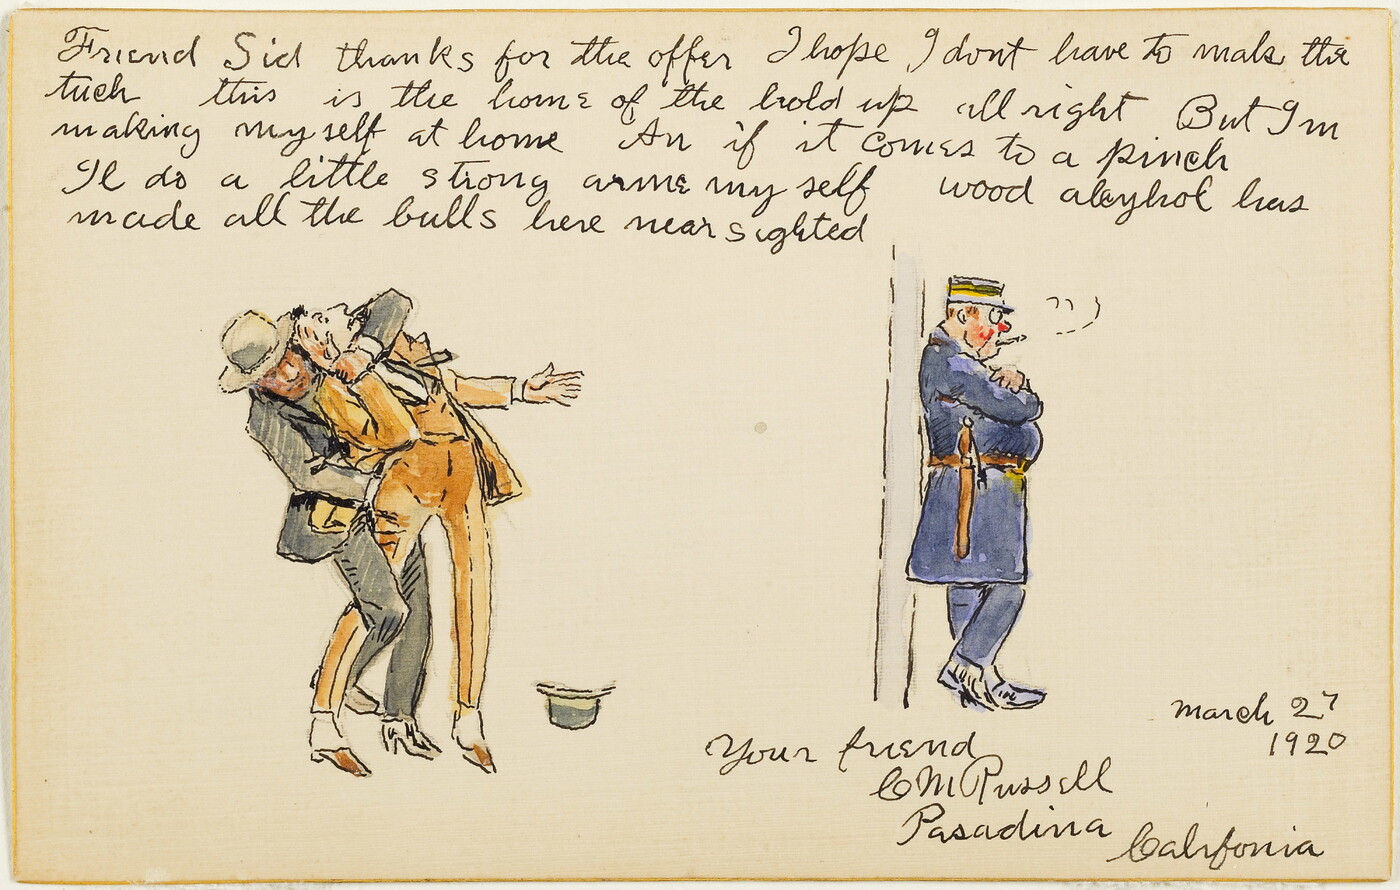 Friend Sid thanks for the offer I hope I dont have to make the
tuch this is the home of the hold up all right But Im
making my self at home An if it comes to a pinch
Il do a little strong arme my self wood alcyhol has
made all the bulls here near sighted
march 27
1920
Your friend
CM Russell
Pasadina
Califonia